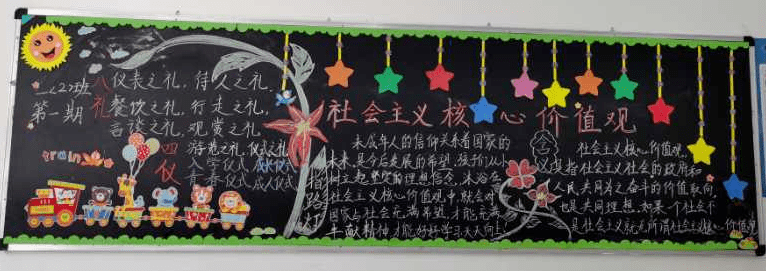 二(2)班
第一期
八礼
仪表之礼,待人之礼,
餐饮之礼,行走之礼,
言谈之礼,观赏之礼,
游览之礼,仪式之礼
四仪
入学仪式 成长仪式
青春仪式 成人仪式
train
指路灯
社会主义核心价值观
未成年人的信仰关系着国家的
未来,是今后发展的希望,孩子们从小
树立起坚定的理想信念,沐浴在
社会主义核心价值观中,就会对
国家与社会充满希望,才能充满
奉献精神才能好好学习天天向上
含义
社会主义核心价值观,
是指社会主义社会的政府和
人民共同为之奋斗的价值取向,
也是共同理想,如果一个社会不
是社会主义就无所谓社会主义核心价值观